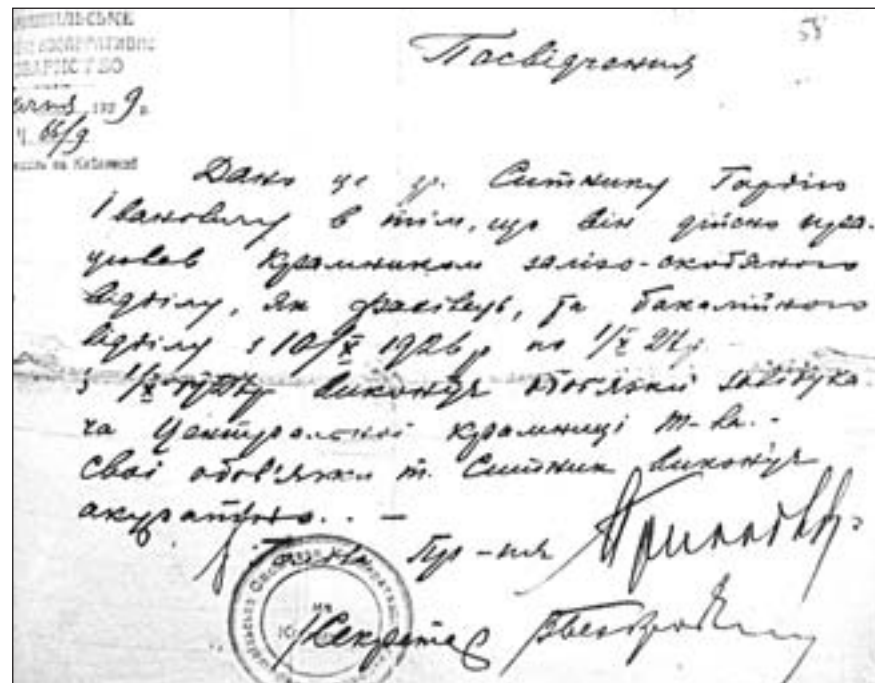 58
Посвідчення
192 9 р.
Ч. 66/9
Дано це гр. Ситнику Гордію
Івановичу в тім, що він дійсно пра-
цював крамником залізо-скобяного
відділу, як фахівець, та бакалійного
відділу з 10/X 1926 р по 1/X 27 р.
з 1/X виконує обов'язки завідука-
ча Центральної крамниці т-ва.-
свої обов'язки т. Ситник виконує
акуратно.. —
Пр-ня
Секретар